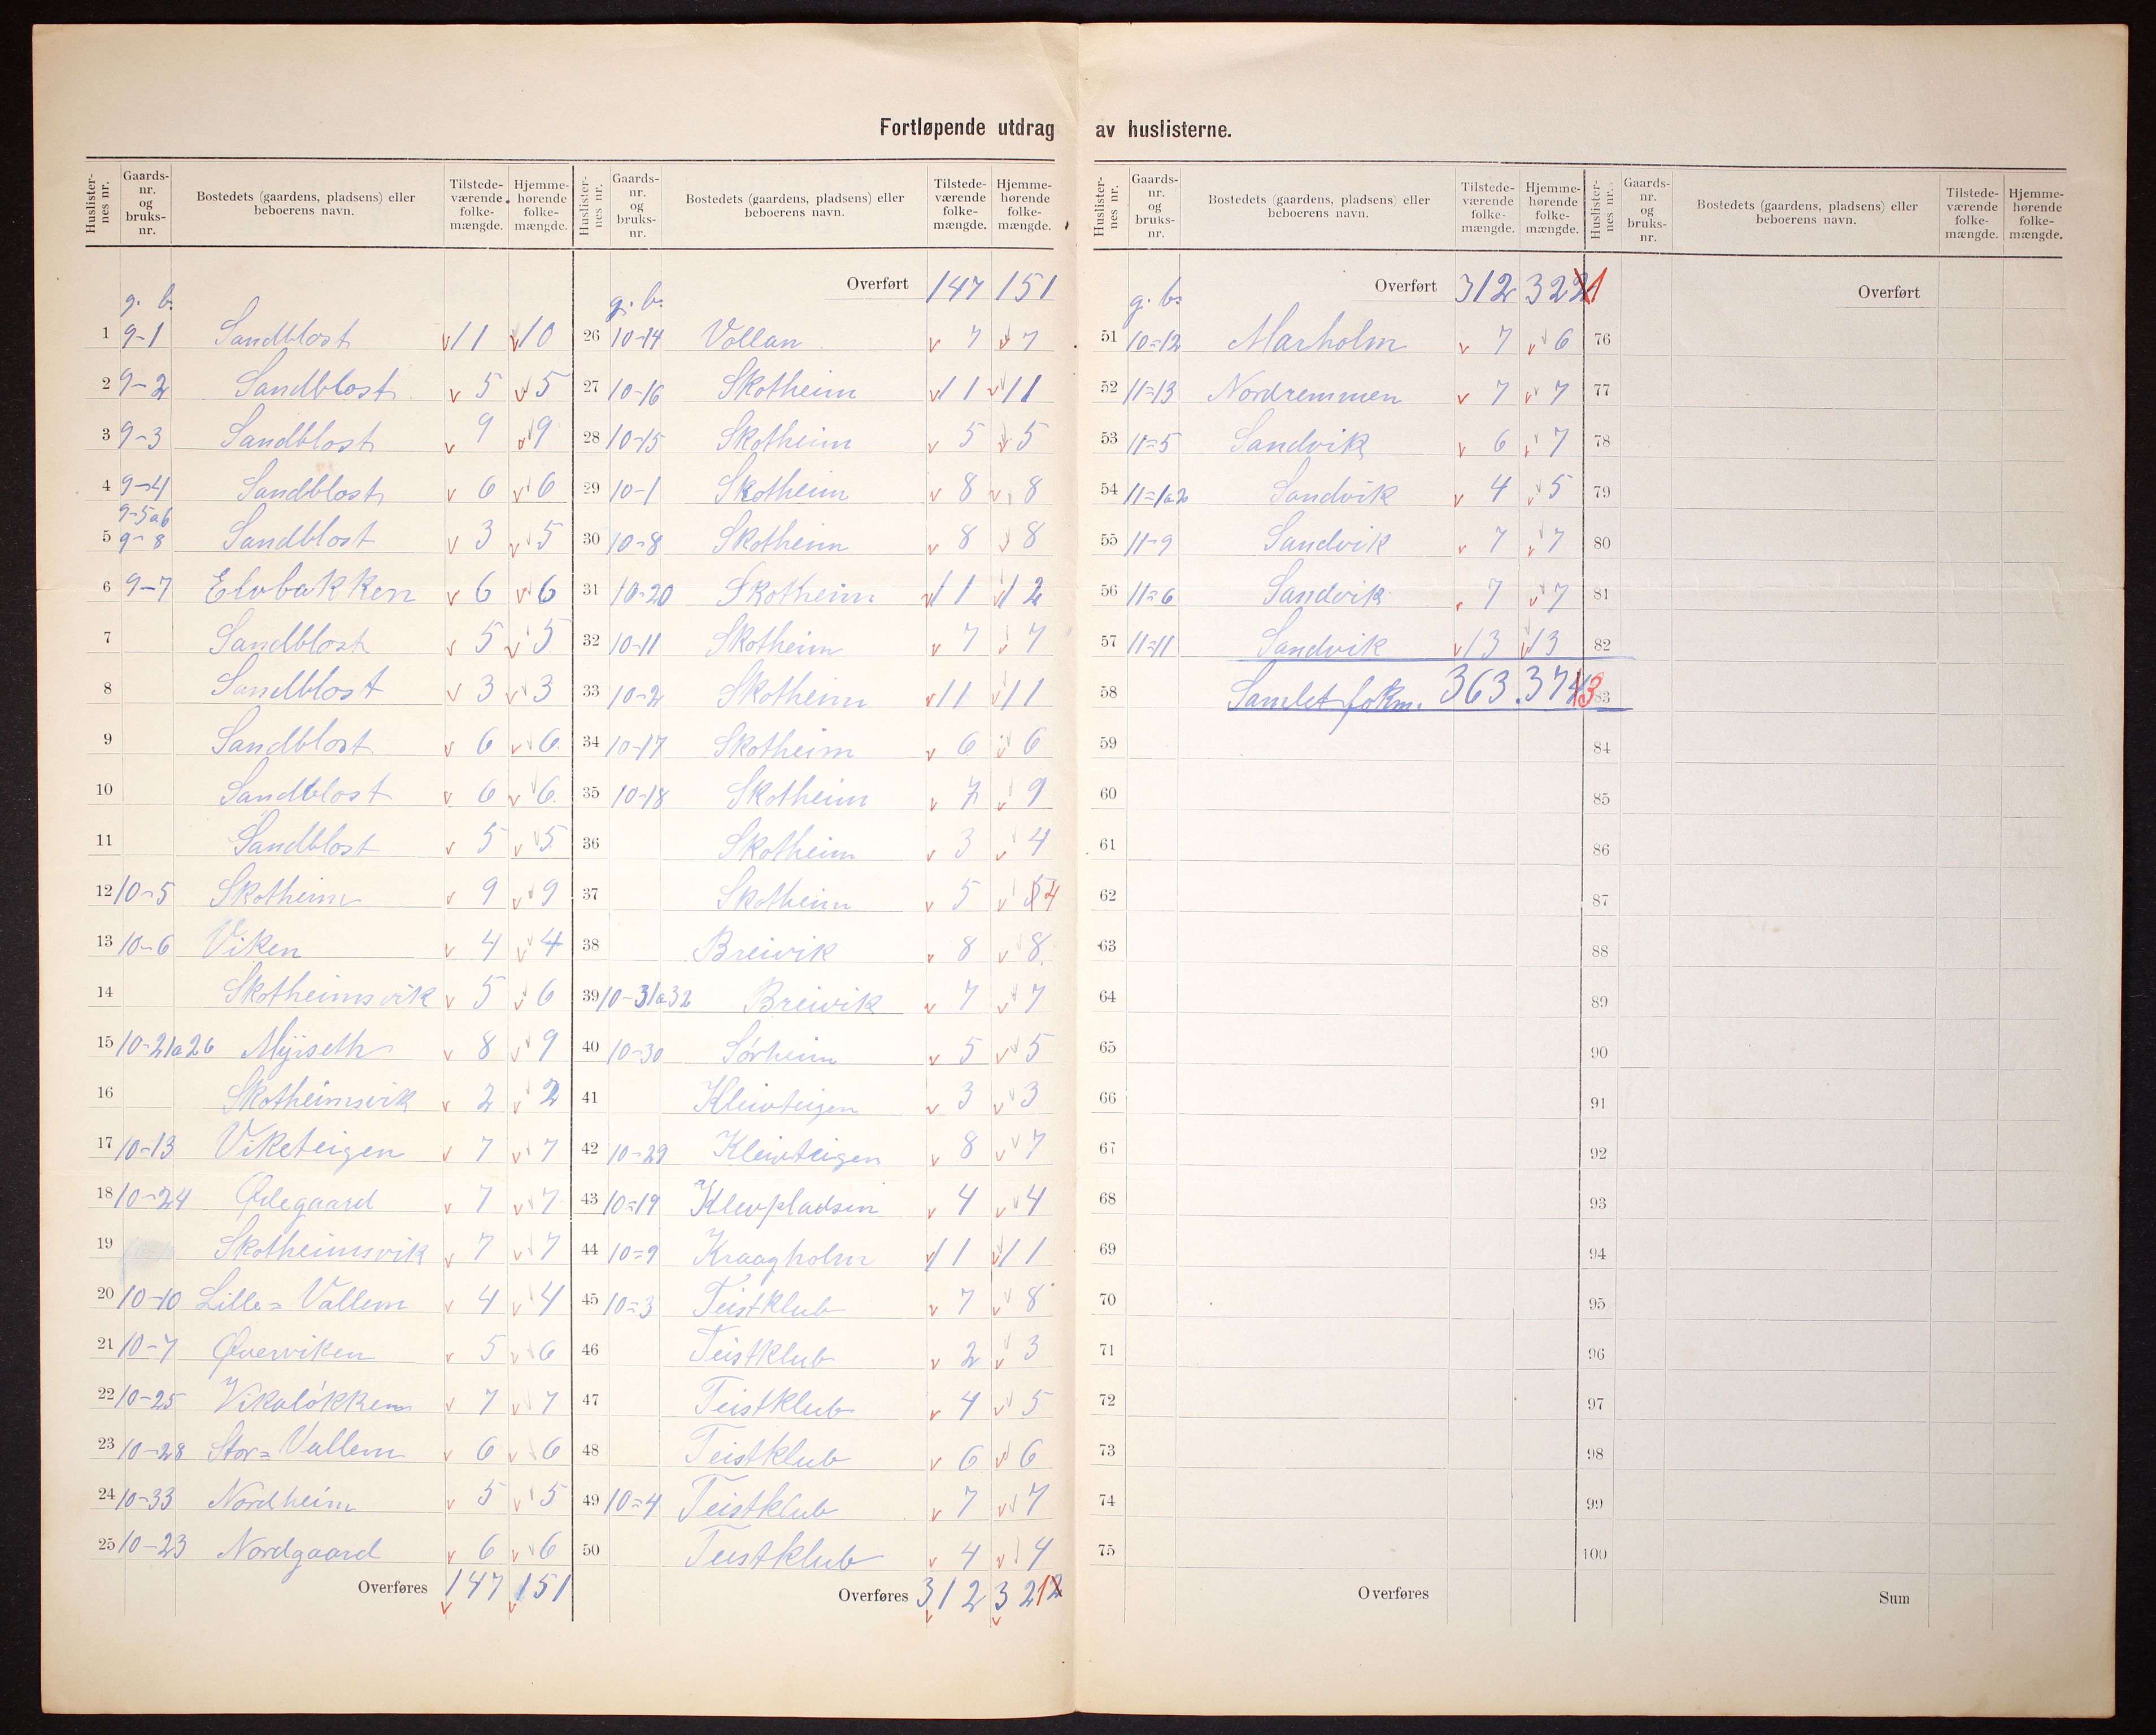 Fortløpende utdrag av huslisterne.
Huslisternes nr. Gaardsnr. og bruksnr. Bostedets (gaardens, pladsens) eller beboerens navn. Tilstedeværende folkemængde. Hjemmehørende folkemængde.
g. b.
1 9-1 Sandblost 11 10
2 9-2 Sandblost 5 5
3 9-3 Sandblost 9 9
4 9-4 Sandblost 6 6
9-5a6
5 9-8 Sandblost 3 5
6 9-7 Elvbakken 6 6
7 Sandblost 5 5
8 Sandblost 3 3
9 Sandblost 6 6
10 Sandblost 6 6
11 Sandblost 5 5
12 10-5 Skotheim 9 9
13 10-6 Viken 4 4
14 Skotheimsvik 5 6
15 10-21a26 Myiseth 8 9
16 Skotheimsvik 2 2
17 10-13 Viketeigen 7 7
18 10-24 Ødegaard 7 7
19 Skotheimsvik 7 7
20 10-10 Lille= Vallem 4 4
21 10-7 Øverviken 5 6
22 10-25 Vikaløkken 7 7
23 10-28 Stor= Vallem 6 6
24 10-33 Nordheim 5 5
25 10-23 Nordgaard 6 6
Overføres 147 151
Huslisternes nr. Gaardsnr. og bruksnr. Bostedets (gaardens, pladsens) eller beboerens navn. Tilstedeværende folkemængde. Hjemmehørende folkemængde.
Overført 147 151
g. b.
26 10-14 Vollan 7 7
27 10-16 Skotheim 11 11
28 10-15 Skotheim 5 5
29 10-1 Skotheim 8 8
30 10-8 Skotheim 8 8
31 10-20 Skotheim 11 12
32 10-11 Skotheim 7 7
33 10-2 Skotheim 11 11
34 10-17 Skotheim 6 6
35 10-18 Skotheim 7 9
36 Skotheim 3 4
37 Skotheim 5 5 4
38 Breivik 8 8
39 10-31a32 Breivik 7 7
40 10-30 Sørheim 5 5
41 Kleivteigen 3 3
42 10-29 Kleivteigen 8 7
43 10=19 Klevpladsen 4 4
44 10=9 Kraagholm 11 11
45 10=3 Teistklub 7 8
46 Teistklub 2 3
47 Teistklub 4 5
48 Teistklub 6 6
49 10=4 Teistklub 7 7
50 Teistklub 4 4
Overføres 312 3212
Huslisternes nr. Gaardsnr. og bruksnr. Bostedets (gaardens, pladsens) eller beboerens navn. Tilstedeværende folkemængde. Hjemmehørende folkemængde.
Overført 312 3221
g. b.
51 10=12 Marholm 7 6
52 11=13 Nordremmen 7 7
53 11=5 Sandvik 6 7
54 11=1a2 Sandvik 4 5
55 11-9 Sandvik 7 7
56 11=6 Sandvik 7 7
57 11=11 Sandvik 13 13
58 Samlet fokm. 363. 3743
59
60
61
62
63
64
65
66
67
68
69
70
71
72
73
74
75
Overføres
Huslisternes nr. Gaardsnr. og bruksnr. Bostedets (gaardens, pladsens) eller beboerens navn. Tilstedeværende folkemængde. Hjemmehørende folkemængde.
Overført
76
77
78
79
80
81
82
83
84
85
86
87
88
89
90
91
92
93
94
95
96
97
98
99
100
Sum